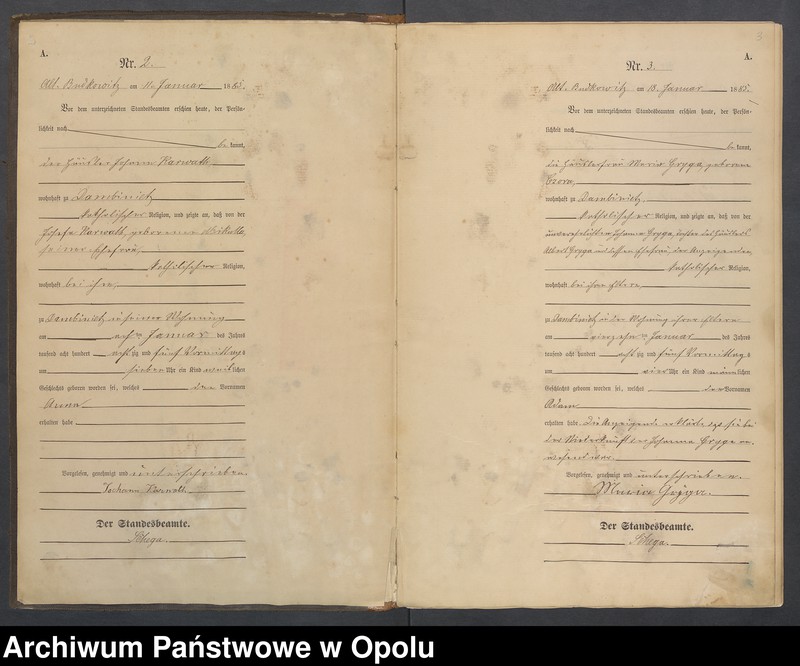 A.
Nr. 2.
Alt. Budkowitz am 11. Januar 1885.
Vor dem unterzeichneten Standesbeamten erschien heute, der Persön-
lichkeit nach
be kannt,
der Häusler Johann Karwath
wohnhaft zu Dambinietz
katholischer Religion, und zeigte an, daß von der
Josefa Karwath, geborenen
seiner Ehefrau,
katholischer Religion,
wohnhaft bei ihm
zu Dambinietz in seiner Wohnung
am acht Januar des Jahres
tausend acht hundert acht zig und fünf Vormittags
um sieben Uhr ein Kind weiblichen
Geschlechts geboren worden sei, welches den Vornamen
Anna
erhalten habe
Vorgelesen, genehmigt und unterschrieben.
Johann Karwath
Der Standesbeamte.
3
A.
Nr. 3.
Alt. Budkowitz am 18. Januar 1885.
Vor dem unterzeichneten Standesbeamten erschien heute, der Persön-
lichkeit nach
be kannt,
die Häuslerfrau Maria Gryga, geborene
wohnhaft zu Dambinietz
katholischer Religion, und zeigte an, daß von der
unverehelichten Johanna Gryga, Tochter des Häuslers
Albert Gryga und dessen Ehefrau, der Anzeigenden,
katholischer Religion,
wohnhaft bei ihren Eltern
zu Dambinietz in der Wohnung ihrer Eltern
am vierzehn Januar des Jahres
tausend acht hundert acht zig und fünf Vormittags
um vier Uhr ein Kind männlichen
Geschlechts geboren worden sei, welches den Vornamen
Adam
erhalten habe. Die Anzeigende erklärte, daß sie bei
der Niederkunft der Johanna Gryga an-
wesend war.
Vorgelesen, genehmigt und unterschrieben.
Maria Gryga.
Der Standesbeamte.
Archiwum Państwowe w Opolu